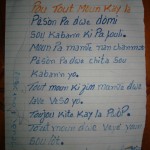 Pou Tout Moun Kay la
Pason Pa dwe domi
Sou Kabann Ki Pa pou li.
Moun Pa mamte nan chanm
Pason Pa dwe chita Sou
Kabann yo.
Tout moun Ki gin mamit dwe
lave veso yo.
Toujou Kite Kay la Pwòp.
Tout moun dwe